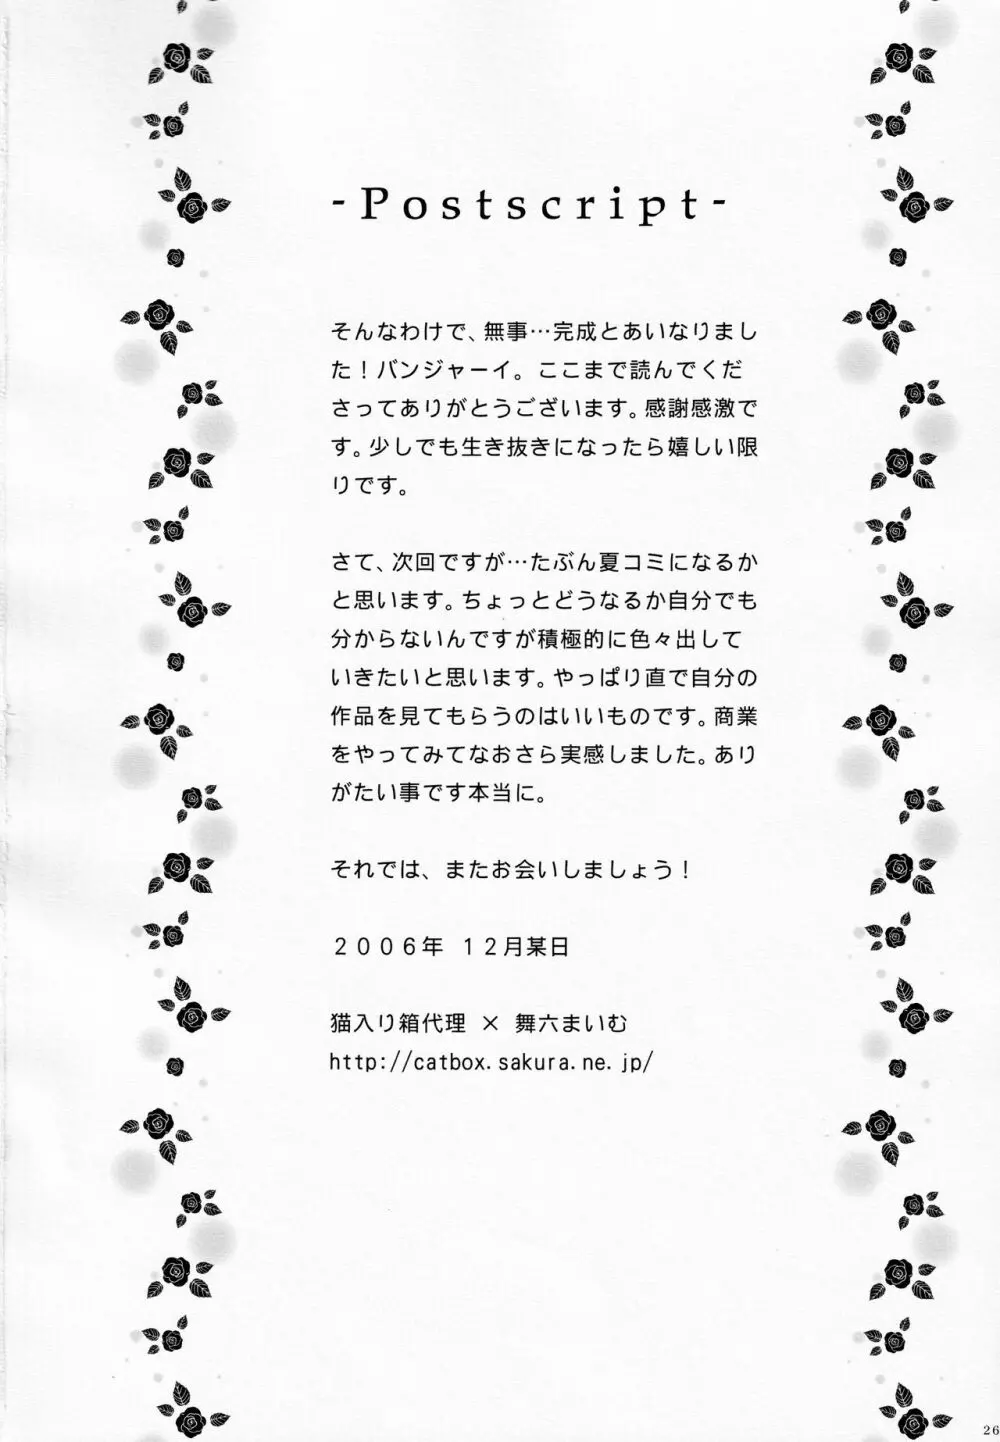 -Postscript-
そんなわけで、無事…完成とあいなりまし
た！バンジャーイ。ここまで読んでくだ
さってありがとうございます。感謝感激で
す。少しでも生き抜きになったら嬉しい限
りです。
さて、次回ですが…たぶん夏コミになるか
と思います。ちょっとどうなるか自分でも
分からないんですが積極的に色々出して
いきたいと思います。やっぱり直で自分の
作品を見てもらうのはいいものです。商業
をやってみてなおさら実感しました。あり
がたい事です本当に。
それでは、またお会いしましょう！
２００６年 １２月某日
猫入り箱代理 × 舞六まいむ
http://catbox.sakura.ne.jp/
26